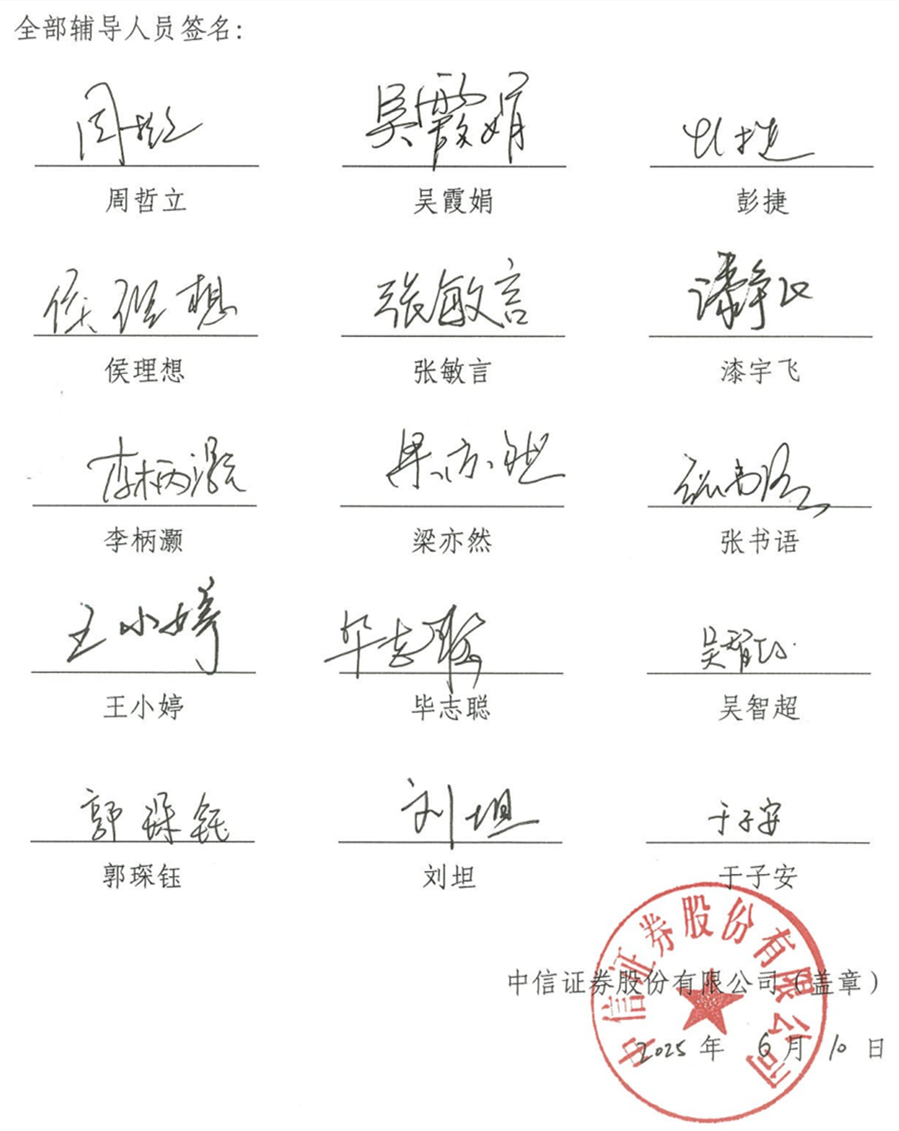 全部辅导人员签名：
周哲立 吴霞娟 彭捷
周哲立 吴霞娟 彭捷
侯理想 张敏言
侯理想 张敏言 漆宇飞
李柄灏 梁亦然 张书语
李柄灏 梁亦然 张书语
王小婷 毕志聪
王小婷 毕志聪 吴智超
郭琛钰 刘坦 于子安
郭琛钰 刘坦 于子安
中信证券股份有限公司（盖章）
2025年 6月 10日
中信证券股份有限公司